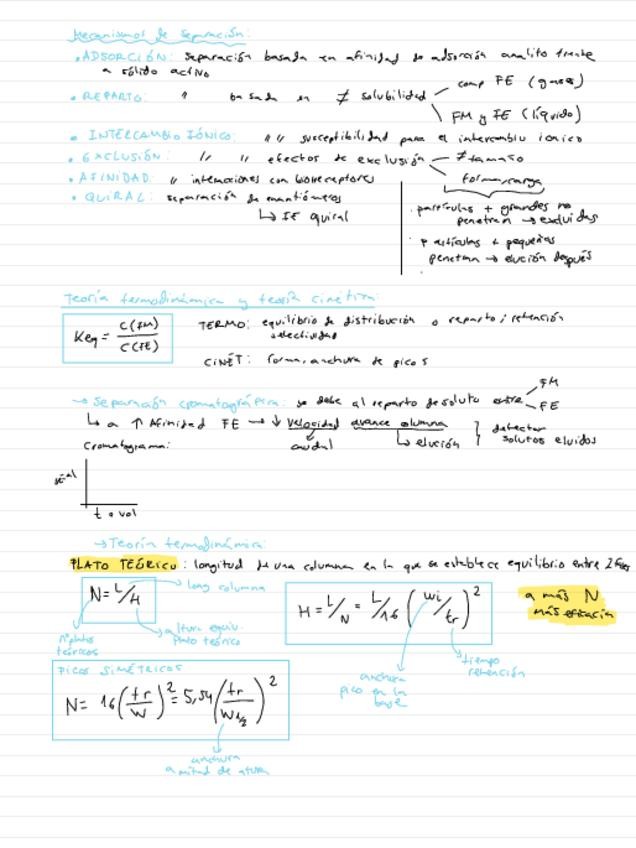 Mecanismos de separación:
• ADSORCIÓN: separación basada en afinidad de adsorción analito frente
a sólido activo
• REPARTO: " basada en ≠ solubilidad
comp FE (gases)
FM y FE (líquido)
• INTERCAMBIO IÓNICO: " " susceptibilidad para el intercambio iónico
• EXCLUSIÓN: " " efectos de exclusión
≠ tamaño
forma, carga
• AFINIDAD: " interacciones con biorreceptores
• QUIRAL: separación de enantiómeros
↳ FE quiral
· partículas + grandes no
penetran → excluidas
· partículas + pequeñas
penetran → elución después
Teoría termodinámica y teoría cinética:
Keq = C(FM) / C(FE)
TERMO: equilibrio de distribución o reparto; retención
selectividad
CINÉT: forma, anchura de picos
→ Separación cromatográfica: se debe al reparto de soluto entre
FM
FE
↳ a ↑ Afinidad FE → ↓ velocidad avance columna
caudal
↳ elución
detector
solutos eluidos
Cromatograma:
señal
t o vol
→ Teoría termodinámica:
PLATO TEÓRICO: longitud de una columna en la que se establece equilibrio entre 2 fases
N = L/H
→ long columna
nº platos
teóricos
altura equiv.
plato teórico
H = L/N = L/16 (wi/tr)²
anchura
pico en la
base
tiempo
retención
a más N
más eficacia
PICOS SIMÉTRICOS
N = 16 (tr/W)² = 5,54 (tr/W½)²
anchura
a mitad de altura